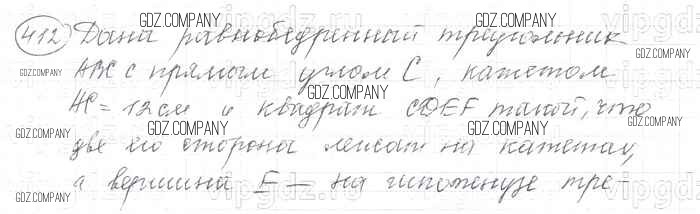 GDZ.COMPANY
412 Даны равнобедренный треугольник
ABC с прямым углом C, катетом
AC = 12 см и квадрат CDEF такой, что
две его стороны лежат на катетах,
а вершина E — на гипотенузе тре-
GDZ.COMPANY
GDZ.COMPANY
GDZ.COMPANY
GDZ.COMPANY
GDZ.COMPANY
GDZ.COMPANY
GDZ.COMPANY
GDZ.COMPANY
GDZ.COMPANY
GDZ.COMPANY
GDZ.COMPANY